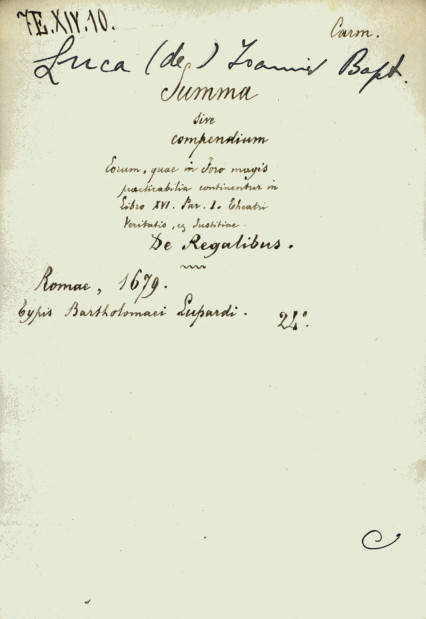 7E.XIV.10.
Carm.
Luca (de) Joannis Bapt.
Summa
sive
compendium
Eorum, quae in Foro magis
practicabilia continentur in
Libro XVI. Par. 1. Theatri
Veritatis, et Justitiae
De Regalibus.
Romae, 1679.
Typis Bartholomaei Lupardi. 24°.